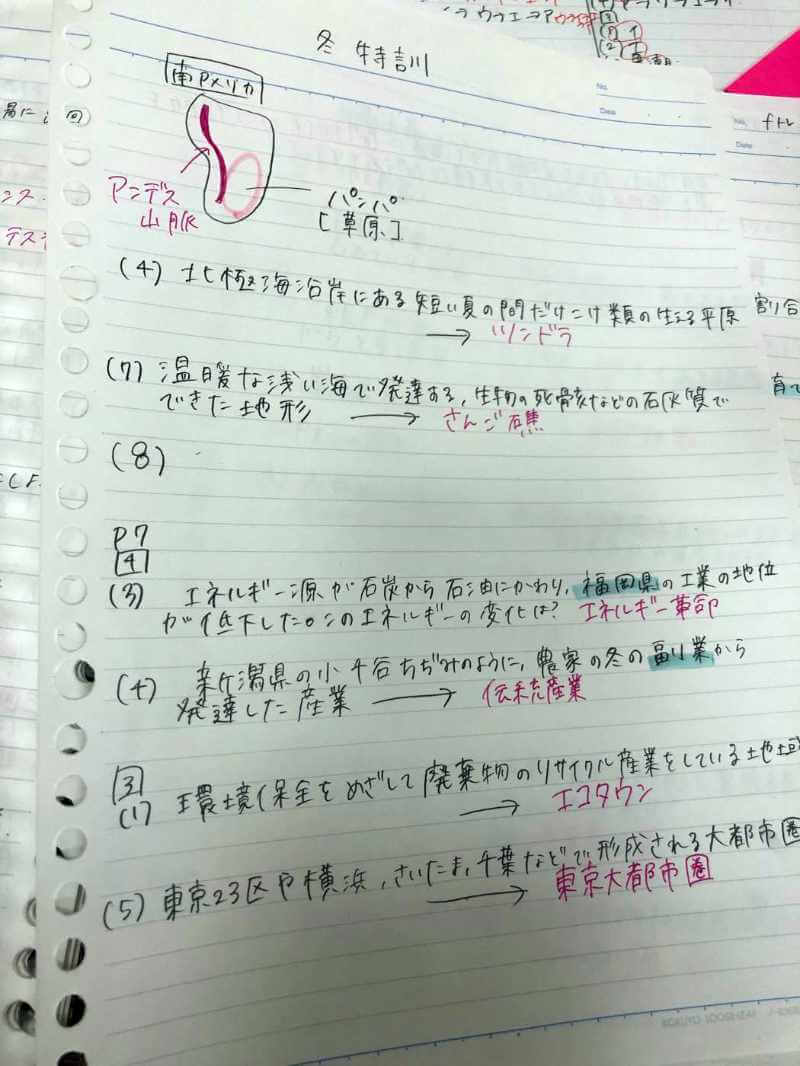 冬 特訓
No.
Date
南アメリカ
アンデス
山脈
パンパ
[草原]
(4) 北極海沿岸にある短い夏の間だけこけ類の生える平原
→ ツンドラ
(7) 温暖な浅い海で発達する,生物の死骸などの石灰質で
できた地形 → さんご礁
(8)
P7
4
(3) エネルギー源が石炭から石油にかわり,福岡県の工業の地位
が低下した。このエネルギーの変化は? エネルギー革命
(4) 新潟県の小千谷ちぢみのように,農家の冬の副業から
発達した産業 → 伝統産業
3
(1) 環境保全をめざして廃棄物のリサイクル産業をしている地域
→ エコタウン
(5) 東京23区や横浜,さいたま,千葉などで形成される大都市圏
→ 東京大都市圏
KOKUYO LOOSE-LEAF
No.
Date
割り合
育て